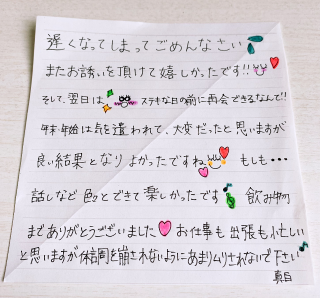 遅くなってしまってごめんなさい
またお誘いを頂けて嬉しかったです!!
そして、翌日は ステキな日の前に再会できるなんて!!
年末・年始は気を遣われて、大変だったと思いますが
良い結果となりよかったですね もしも・・・
話しなど 色々とできて楽しかったです 飲み物
までありがとうございました お仕事も 出張も忙しい
と思いますが体調を崩されないようにあまりムリされないで下さい